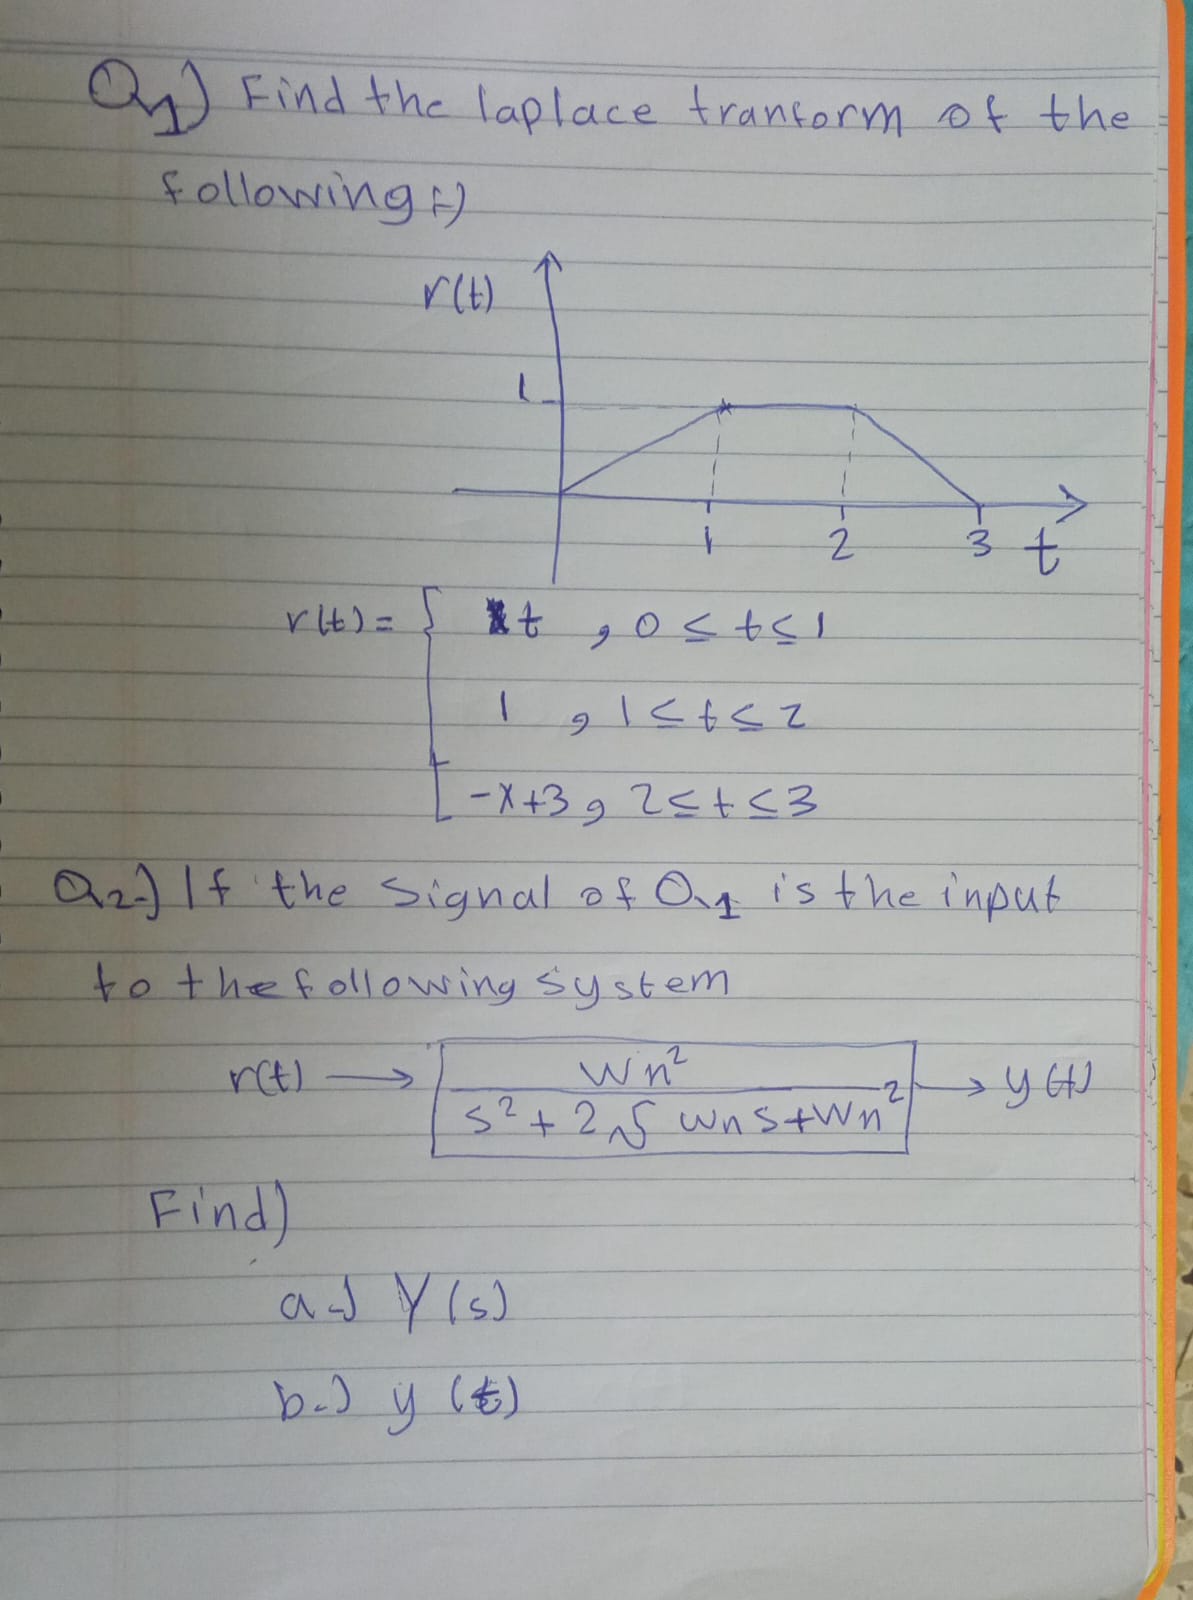 Q1) Find the laplace tranform of the
following :-)
r(t)
1
1 2 3 t
r(t) = { t , 0 ≤ t ≤ 1
1 , 1 ≤ t ≤ 2
-x+3 , 2 ≤ t ≤ 3
Q2-) If the signal of Q1 is the input
to the following system
r(t) → Wn² → y(t)
s² + 2ζ wn s + Wn²
Find)
a-) Y(s)
b-) y(t)